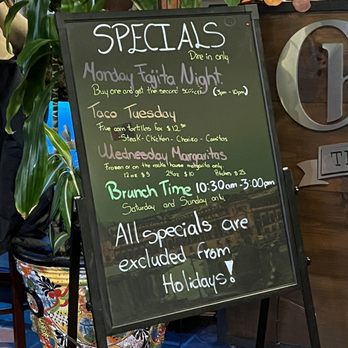 SPECIALS
Dine in only
Monday Fajita Night
Buy one and get the second 50% off (3pm - 10pm)
Taco Tuesday
Five corn tortillas for $12.50
-Steak - Chicken - Chorizo - Carnitas
Wednesday Margaritas
Frozen or on the rocks house margarita only
12oz $5 24oz $10 Pitchers $25
Brunch Time 10:30am-3:00pm
Saturday and Sunday only
All specials are
excluded from
Holidays!